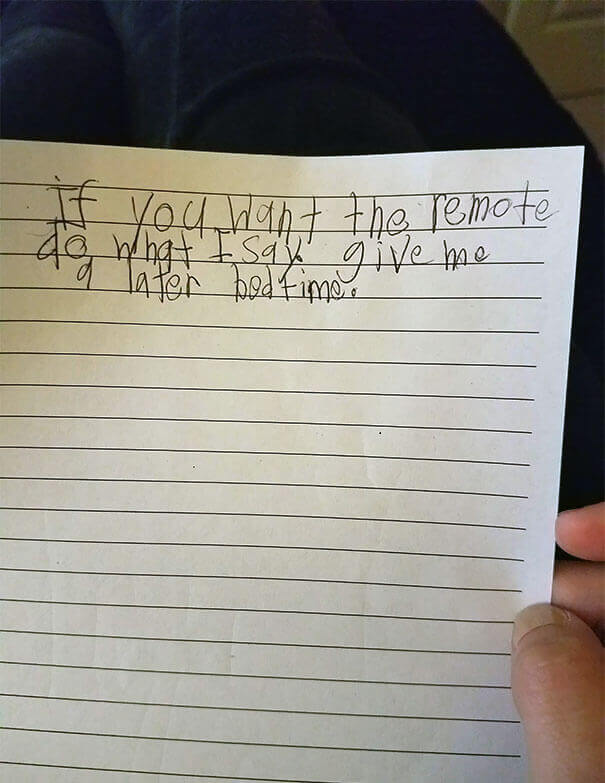 If you want the remote
do what I say give me
a later bedtime.